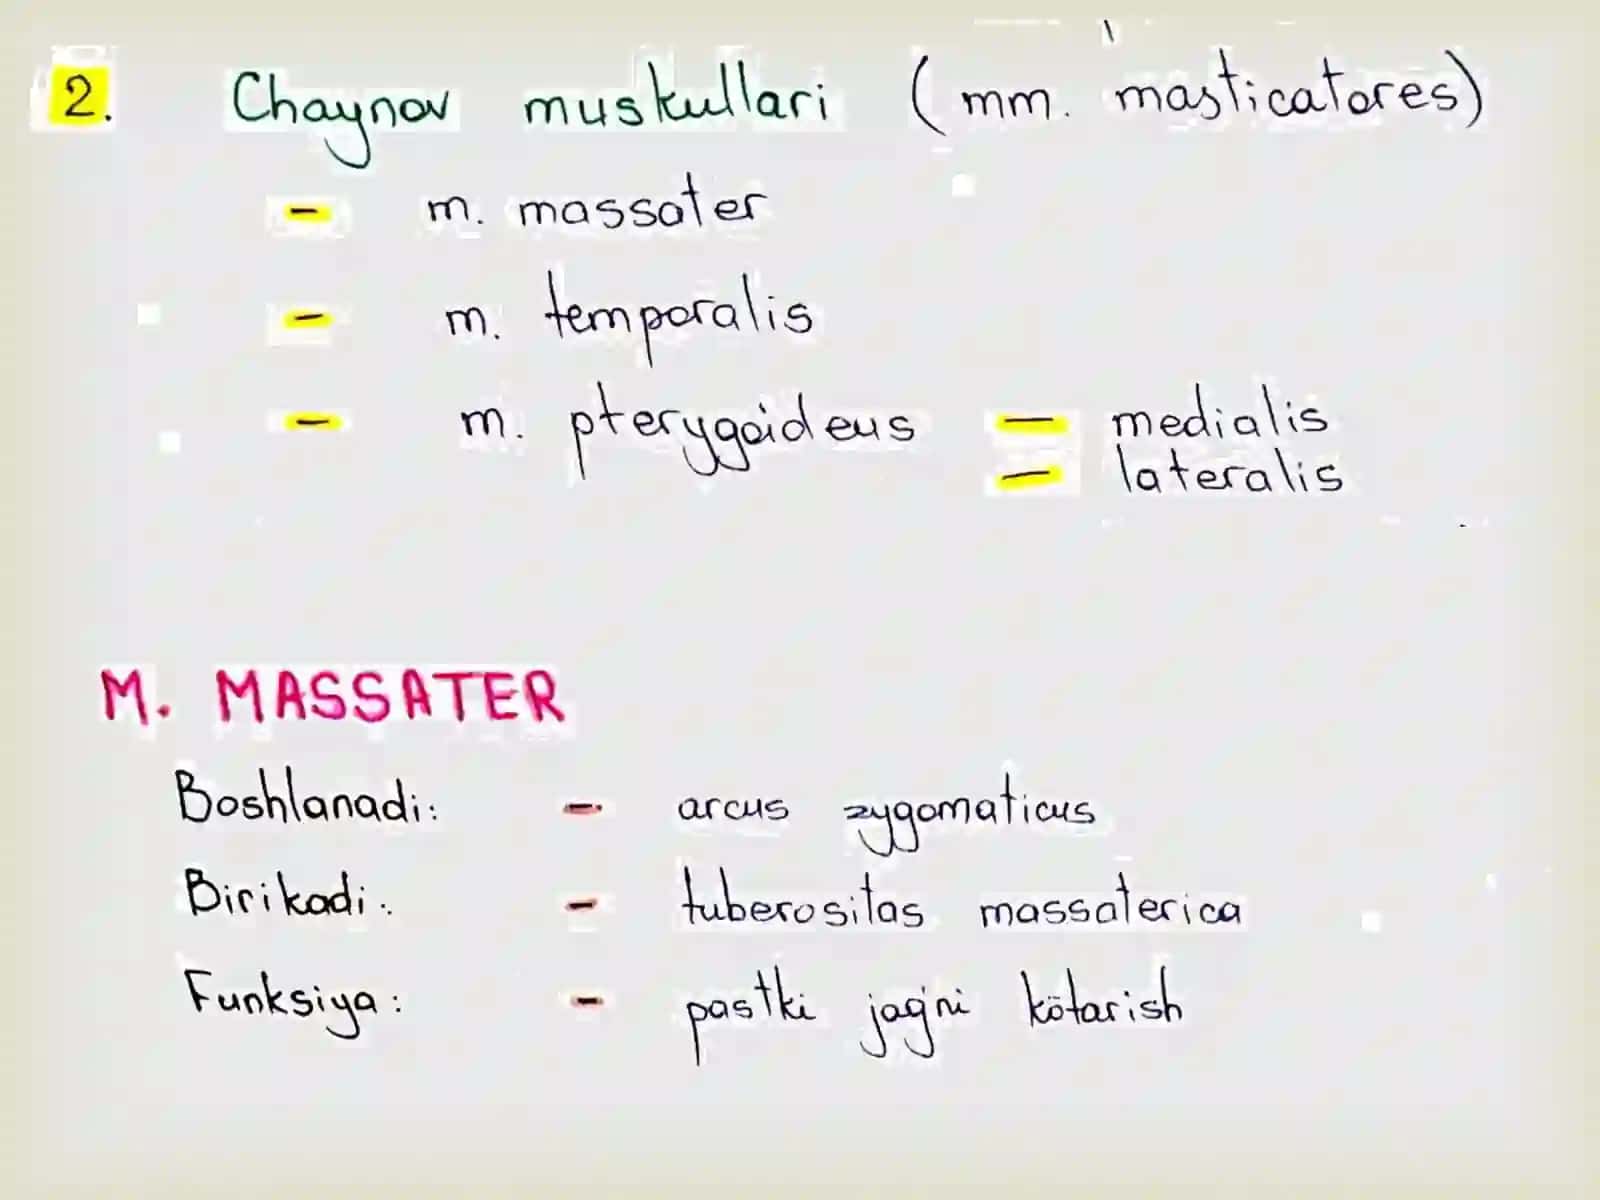 2. Chaynov muskullari (mm. masticatores)
- m. massater
- m. temporalis
- m. pterygoideus - medialis
- lateralis
M. MASSATER
Boshlanadi: - arcus zygomaticus
Birikadi: - tuberositas massaterica
Funksiya: - pastki jag'ni kötarish